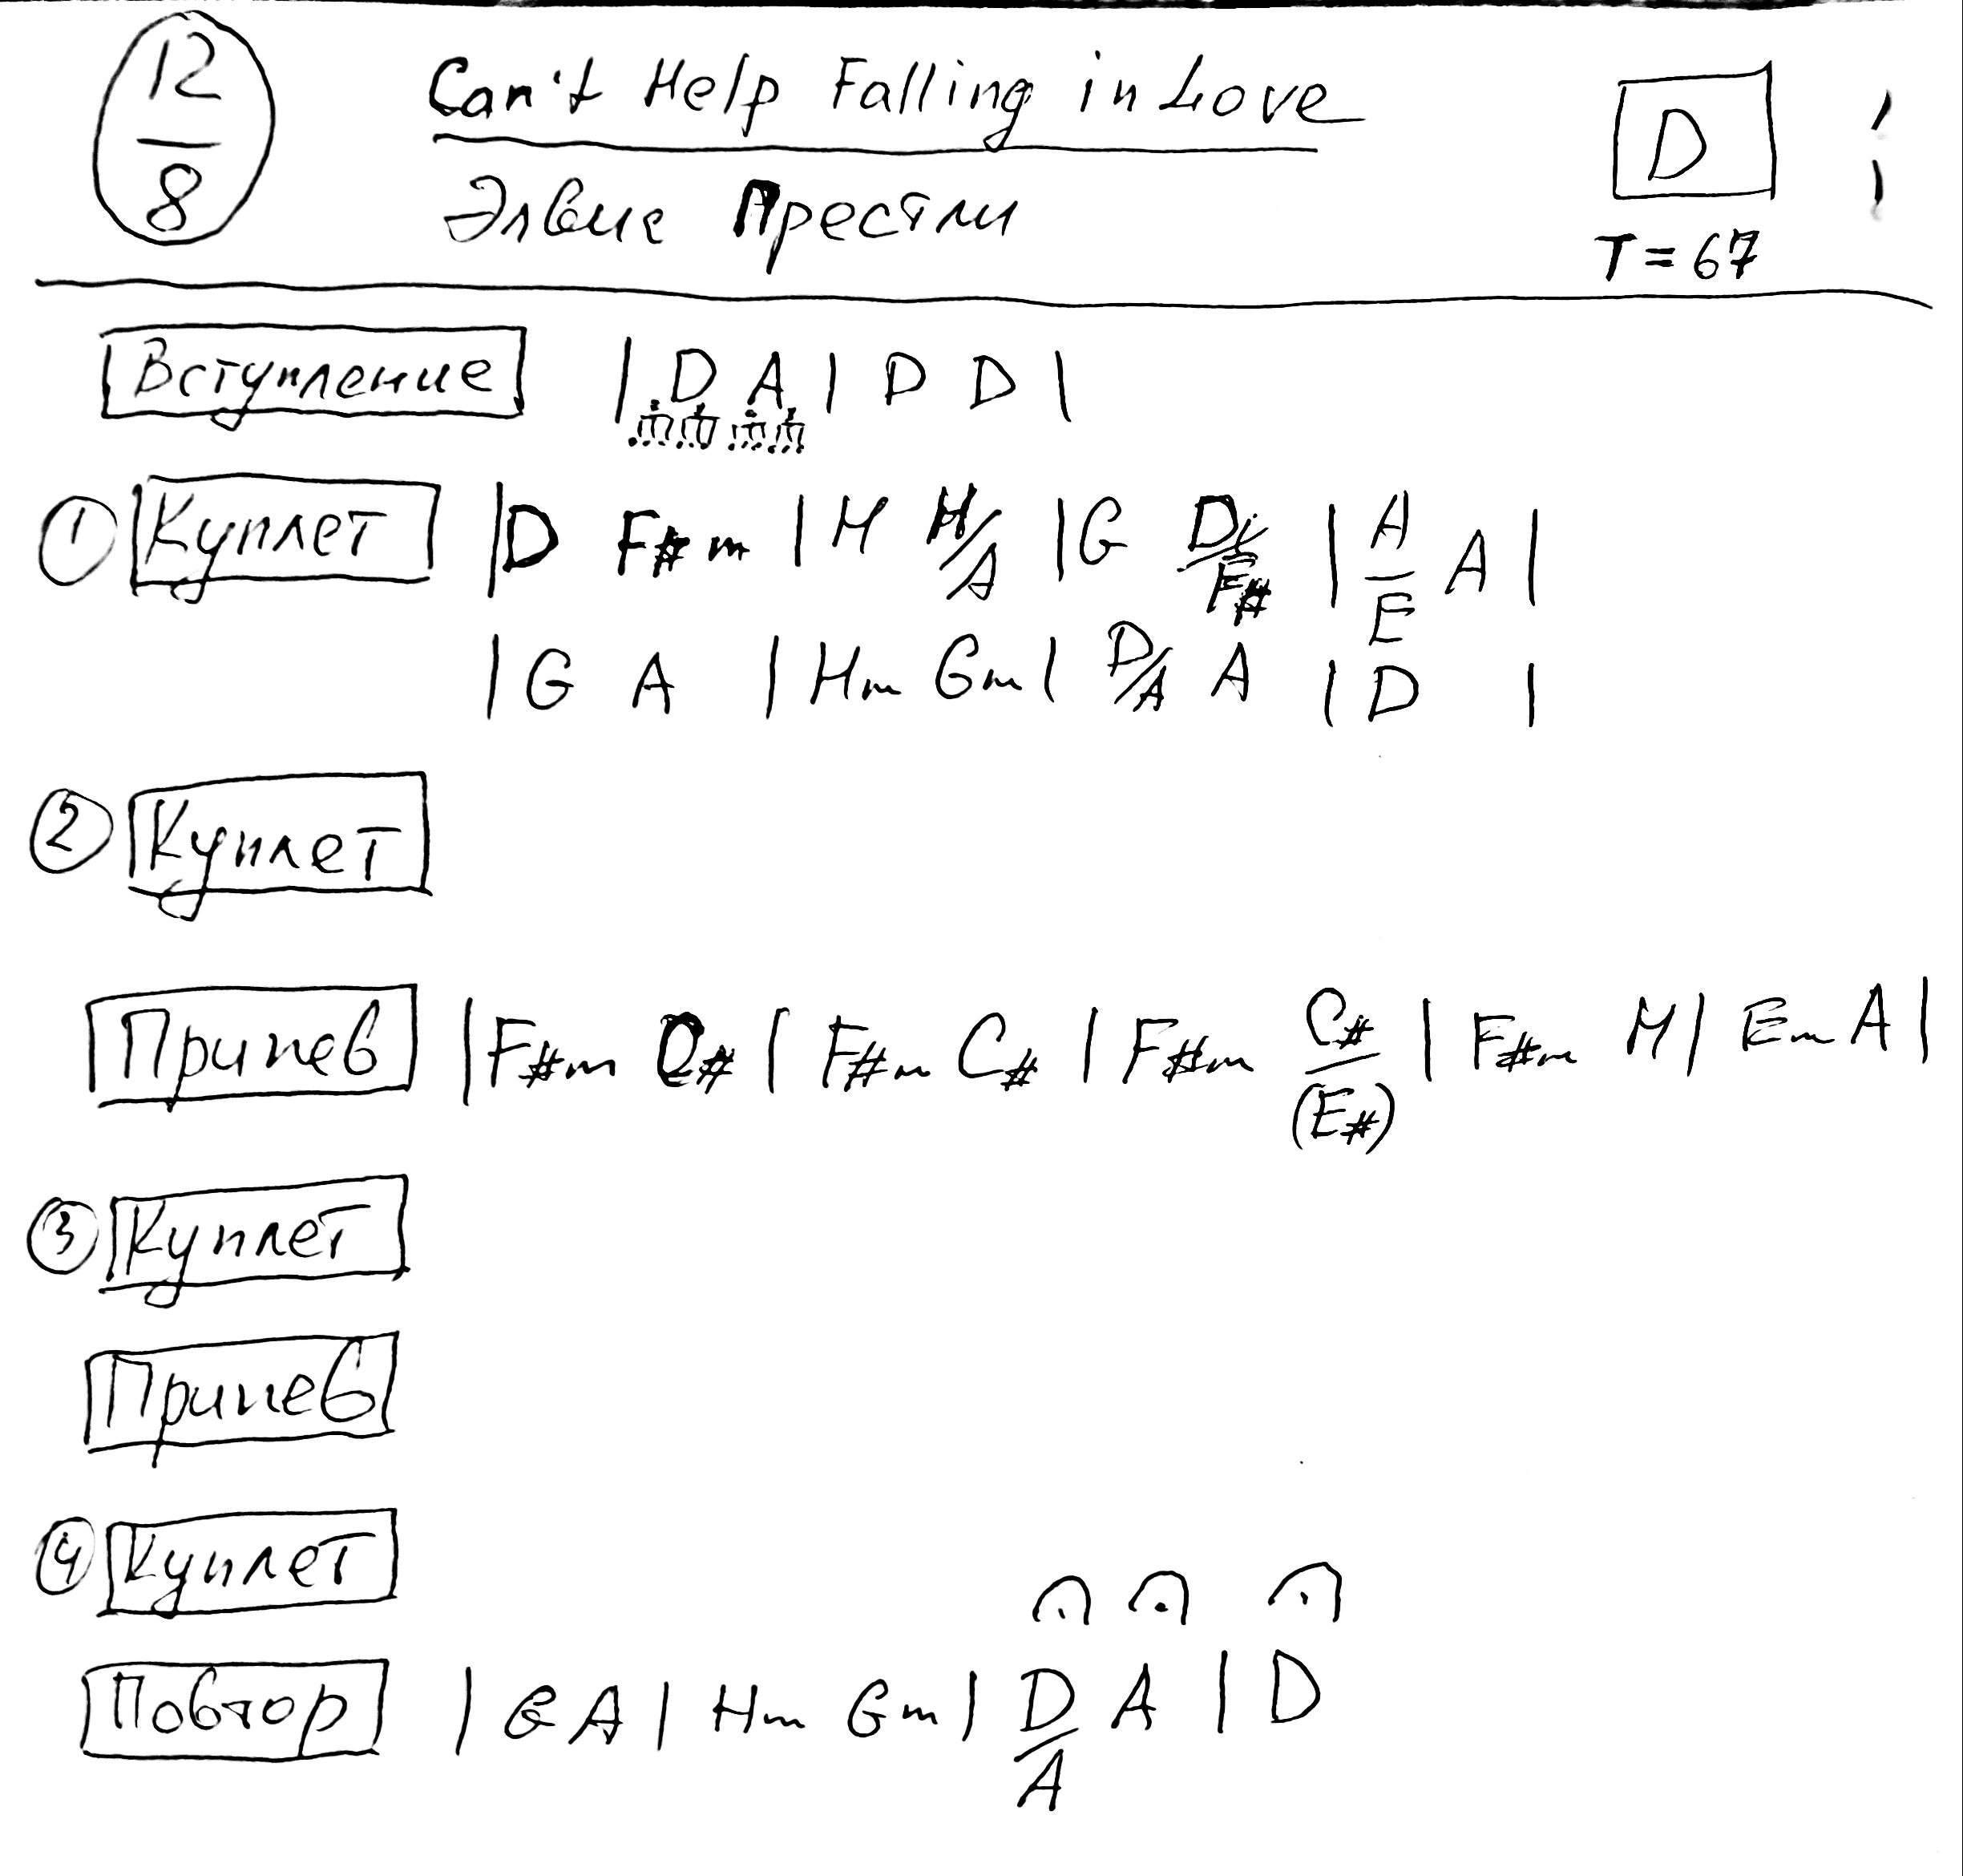 12/8 Can't Help Falling in Love D
Элвис Престли T = 67
Вступление | D A | D D |
① Куплет | D F#m | H H/A | G D/F# | A/E A |
| G A | Hm Gm | D/A A | D |
② Куплет
Припев | F#m C# | F#m C# | F#m C#/(E#) | F#m H | Em A |
③ Куплет
Припев
④ Куплет
Повтор | G A | Hm Gm | D/A A | D